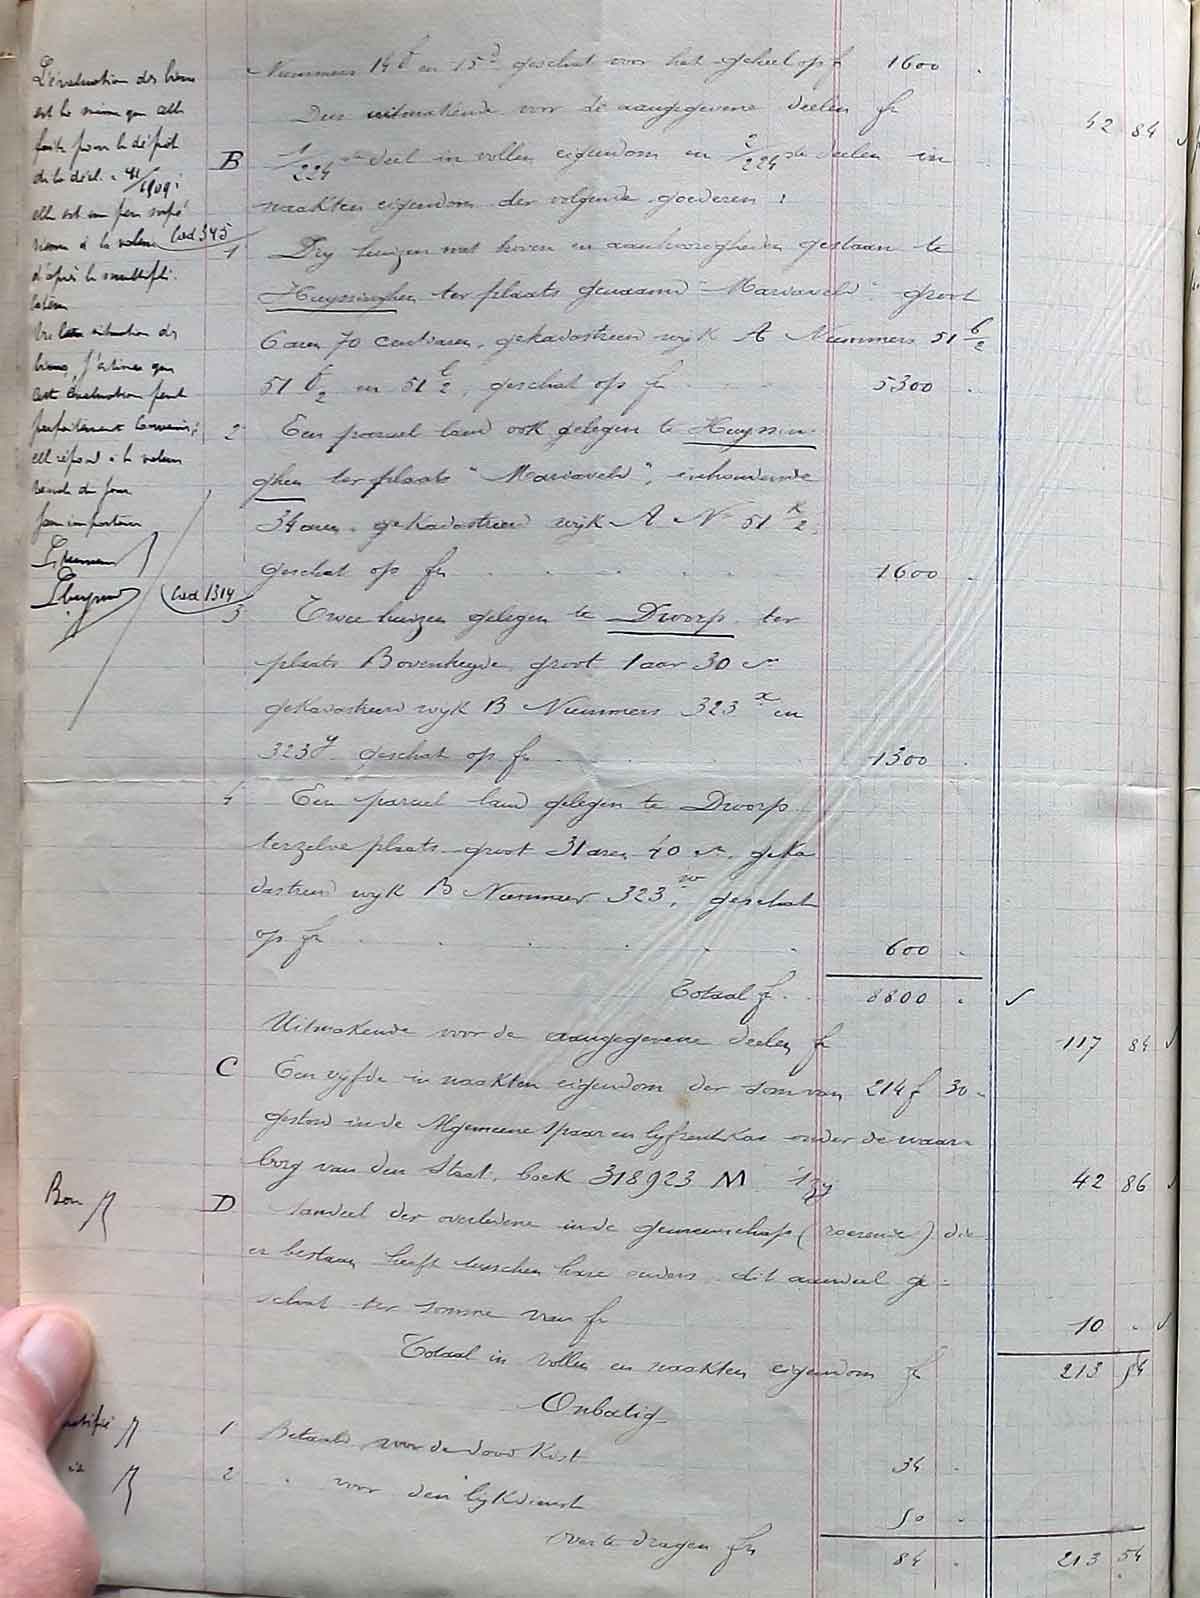 Nummers 14 en 15d geschat voor het geheel op fr 1600 .
Dus uitmakende voor de aangegevene deelen fr 42 84
B 1/224 deel in vollen eigendom en 2/224ste deelen in
naakten eigendom der volgende goederen :
Cad 345
1 Dry huizen met hoven en aanhoorigheden gestaan te
Huyssinghen ter plaats genaamd "Mariaveld" groot
6 aren 70 centiaren, gekadastreerd wyk A Nummers 51
51 en 51 , geschat op fr 5300 .
2 Een parceel land ook gelegen te Huyssin-
ghen ter plaats "Mariaveld", inhoudende
34 aren, gekadastreerd wyk A No 51
geschat op fr . . . . . 1600 .
Cad 1314
3 Twee huizen gelegen te Dworp ter
plaats Bovenheyde, groot 1 aar 30 ca
gekadastreerd wyk B Nummers 323x en
323y geschat op fr . . . 1300 .
4 Een parceel land gelegen te Dworp
terzelve plaats groot 31 aren 40 ca, geka
dastreerd wyk B Nummer 323w, geschat
op fr . . . . . 600 .
Totaal fr . . 8800 . ✓
Uitmakende voor de aangegevene deelen fr 117 84 ✓
C Een vyfde in naakten eigendom der som van 214 f 30
gestord in de Algemeene Spaar en lyfrentkas onder de waar-
borg van den Staat, boek 318923 M 42 86
D Aandeel der overledene in de gemeenschap (roerende) die
er bestaan heeft tusschen hare ouders, dit aandeel ge-
schat ter somme van fr 10 . ✓
Totaal in vollen en naakten eigendom fr 213 54
Onbatig
1 Betaald voor de dood Kist 34 .
2 " voor den lykdienst 50 .
over te dragen fr 84 . 213 54
L'évaluation des biens
est la même que celle
faite pour le dépôt
de la décl. 1909 :
elle est un peu supé
rieure à la valeur
d'après la multipli-
cation
Vu la situation des
biens, j'estime que
cette évaluation peut
parfaitement convenir,
elle répond à la valeur
vénale du jour
Bon